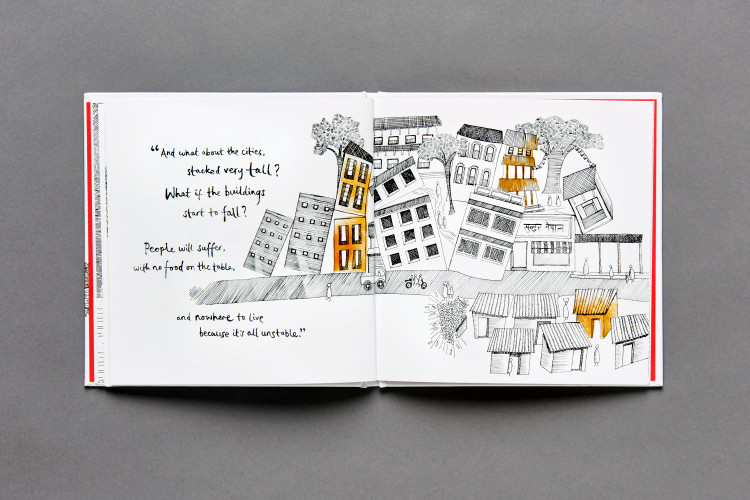 “And what about the cities,
stacked very tall?
What if the buildings
start to fall?
People will suffer,
with no food on the table,
and nowhere to live
because it's all unstable.”
सुन्दर नेपाल